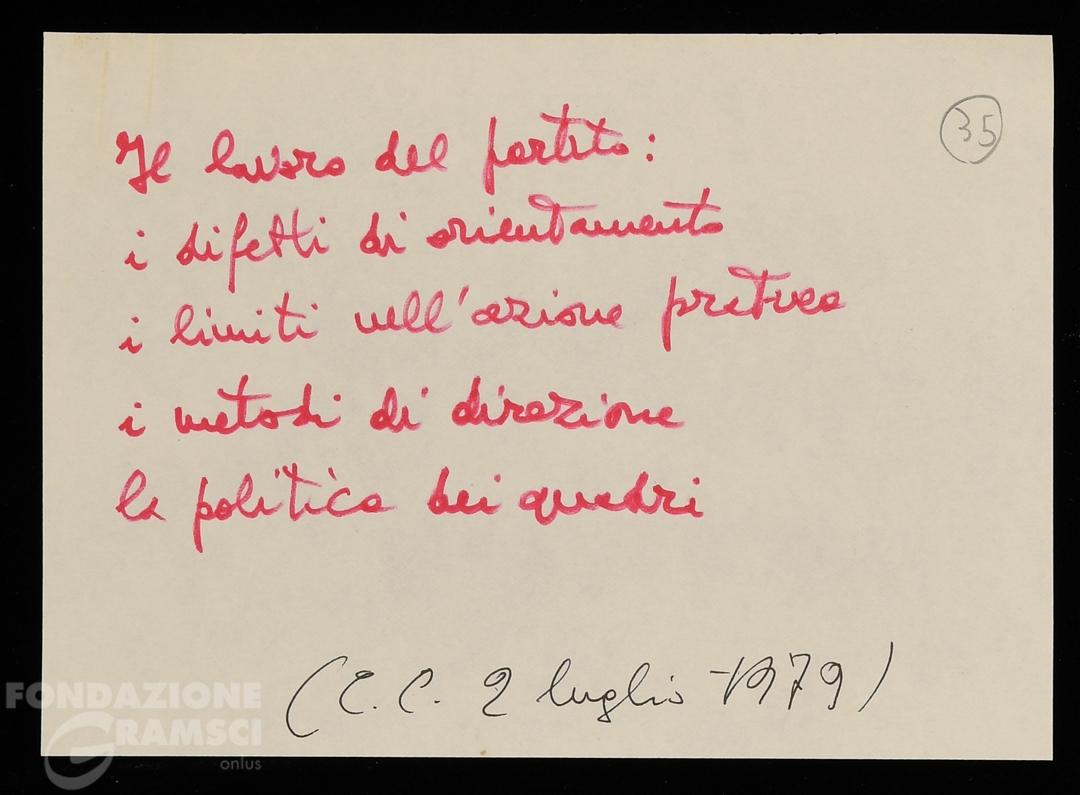 35
Il lavoro del partito:
i difetti di orientamento
i limiti nell'azione pratica
i metodi di direzione
la politica dei quadri
(C.C. 2 luglio 1979)
FONDAZIONE
GRAMSCI
onlus